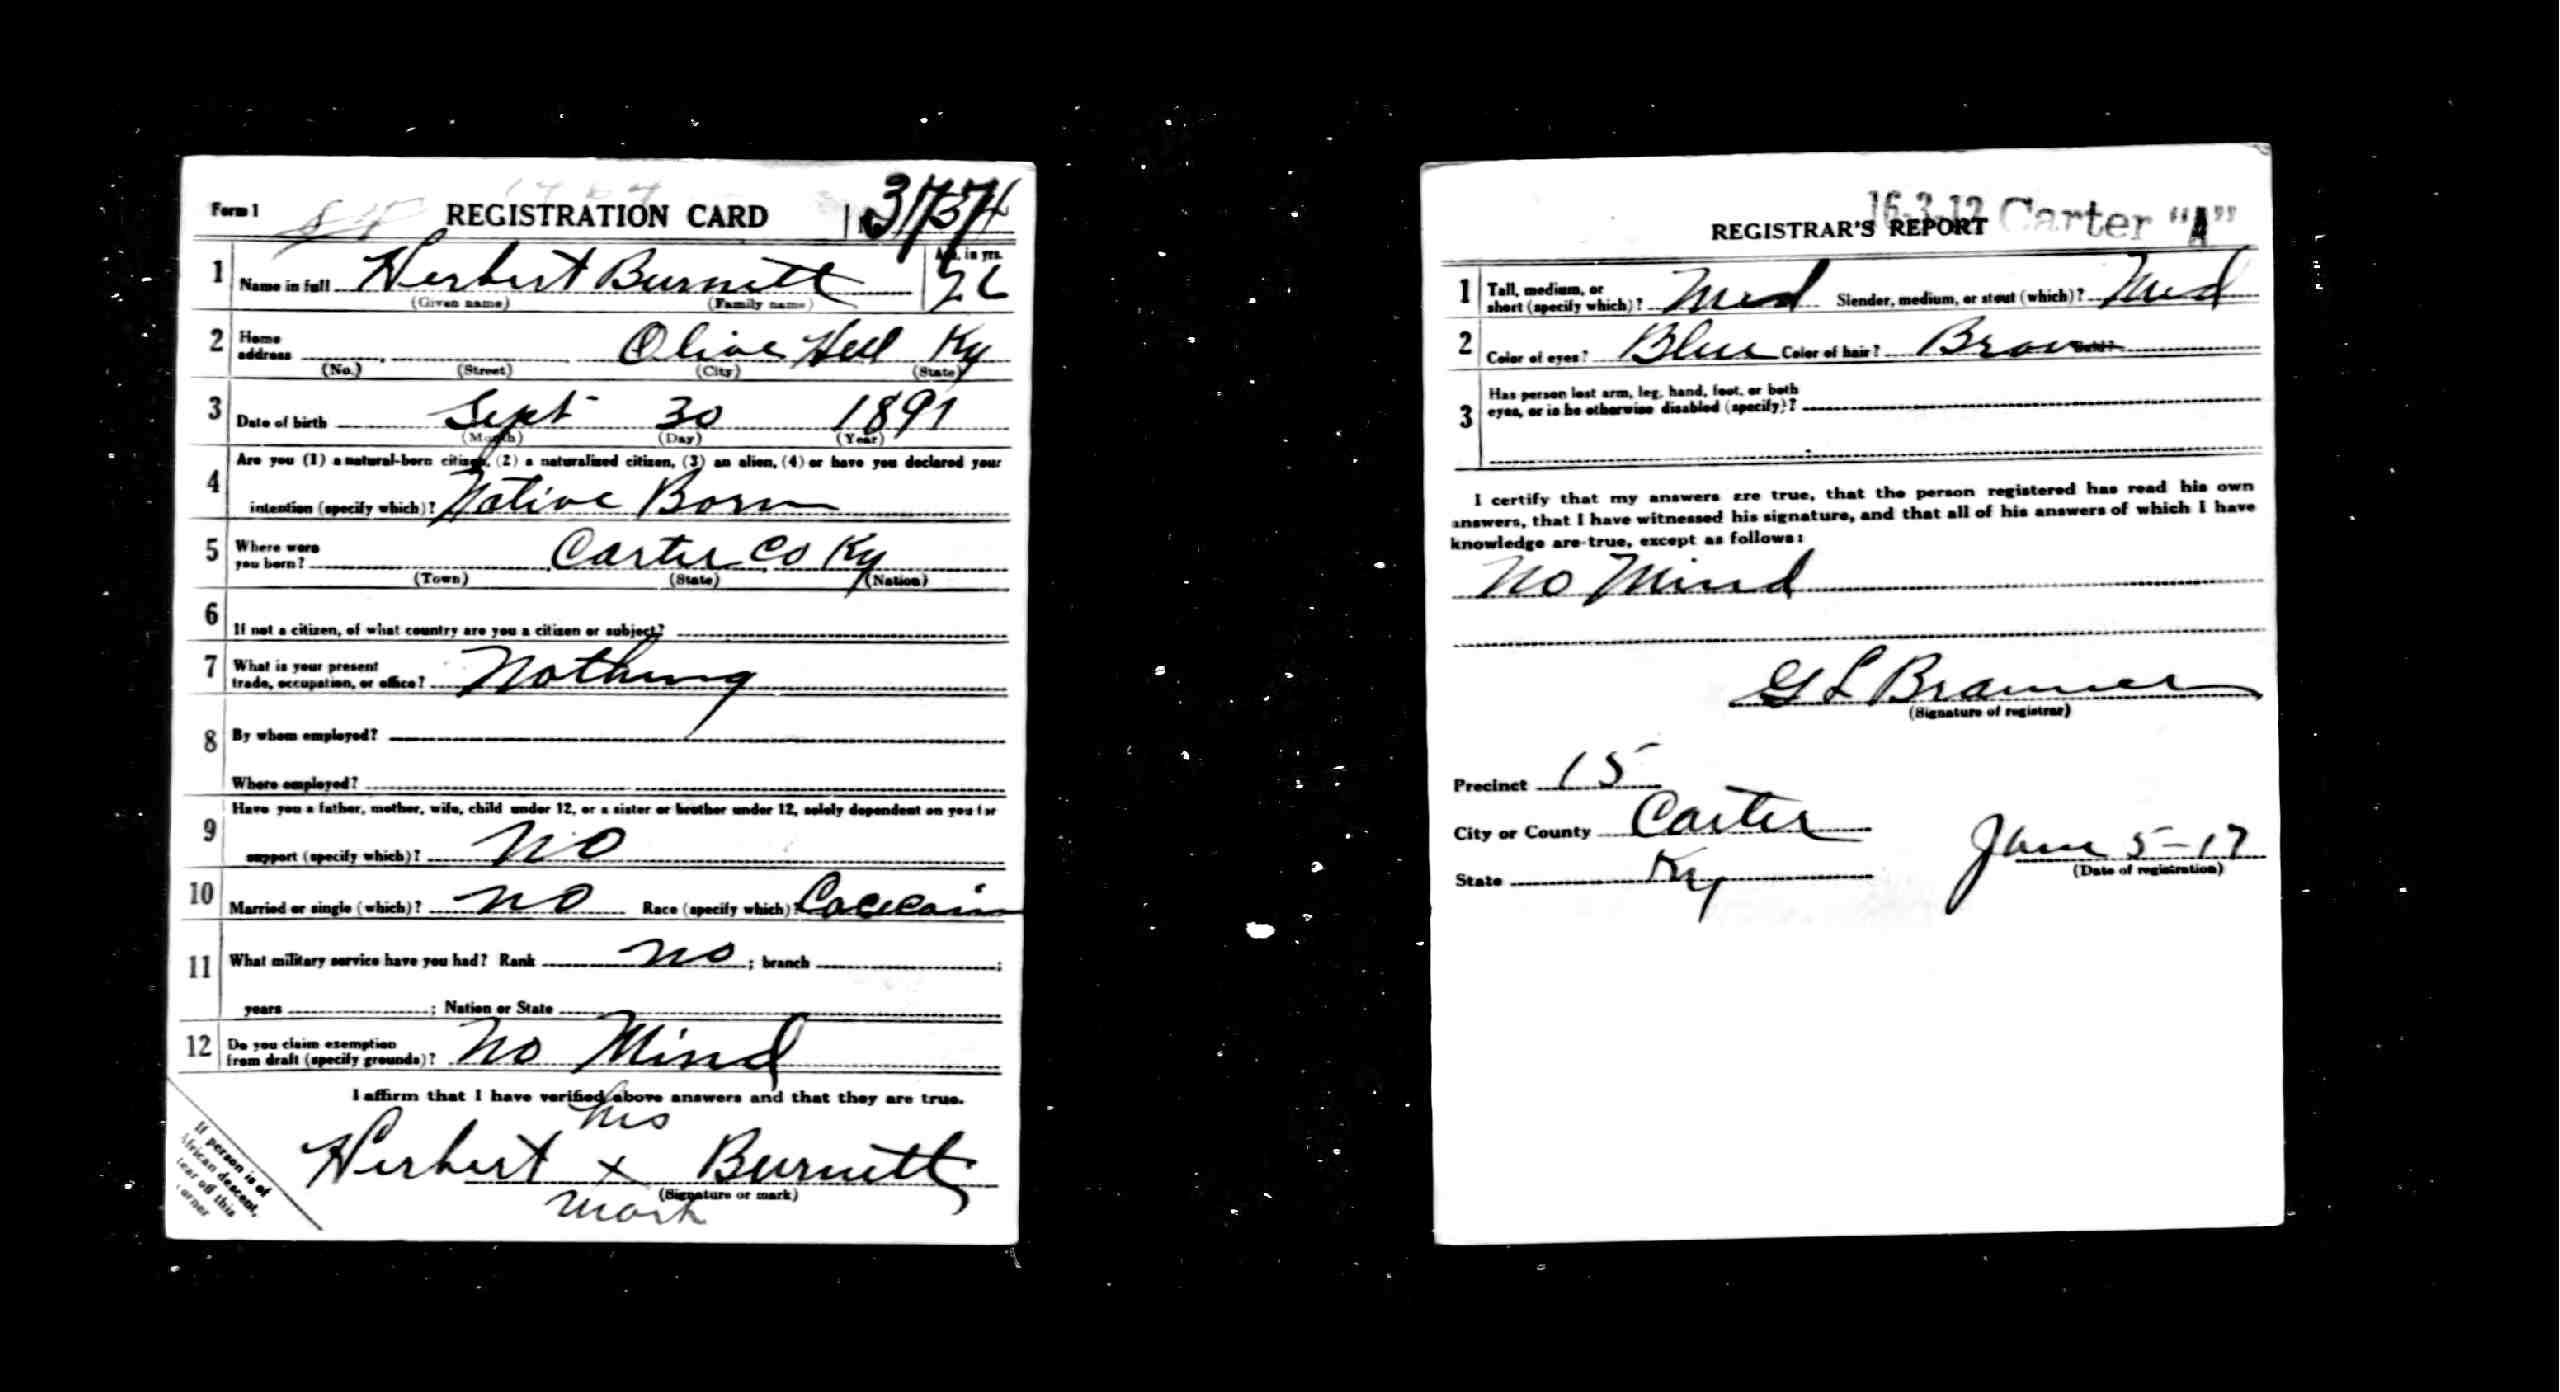 Form 1 REGISTRATION CARD
1 Name in full Herbert Burnett Age, in yrs.
(Given name) (Family name)
2 Home address Olive Hill Ky
(No.) (Street) (City) (State)
3 Date of birth Sept 30 1891
(Month) (Day) (Year)
4 Are you (1) a natural-born citizen, (2) a naturalized citizen, (3) an alien, (4) or have you declared your
intention (specify which)? Native Born
5 Where were you born? Carter Co Ky
(Town) (State) (Nation)
6 If not a citizen, of what country are you a citizen or subject?
7 What is your present trade, occupation, or office? Nothing
8 By whom employed?
Where employed?
9 Have you a father, mother, wife, child under 12, or a sister or brother under 12, solely dependent on you for
support (specify which)? NO
10 Married or single (which)? NO Race (specify which)?
11 What military service have you had? Rank NO ; branch ;
years ; Nation or State
12 Do you claim exemption from draft (specify grounds)? No Mind
I affirm that I have verified above answers and that they are true.
his
Herbert x Burnett
(Signature or mark)
mark
If person is of
African descent,
tear off this
corner
16-3-12 Carter "A"
REGISTRAR'S REPORT
1 Tall, medium, or short (specify which)? Med Slender, medium, or stout (which)? Med
2 Color of eyes? Blue Color of hair? Brow Bald?
3 Has person lost arm, leg, hand, foot, or both
eyes, or is he otherwise disabled (specify)?
I certify that my answers are true, that the person registered has read his own
answers, that I have witnessed his signature, and that all of his answers of which I have
knowledge are true, except as follows:
No Mind
G L Brammer
(Signature of registrar)
Precinct 15
City or County Carter
State Ky
June 5-17
(Date of registration)